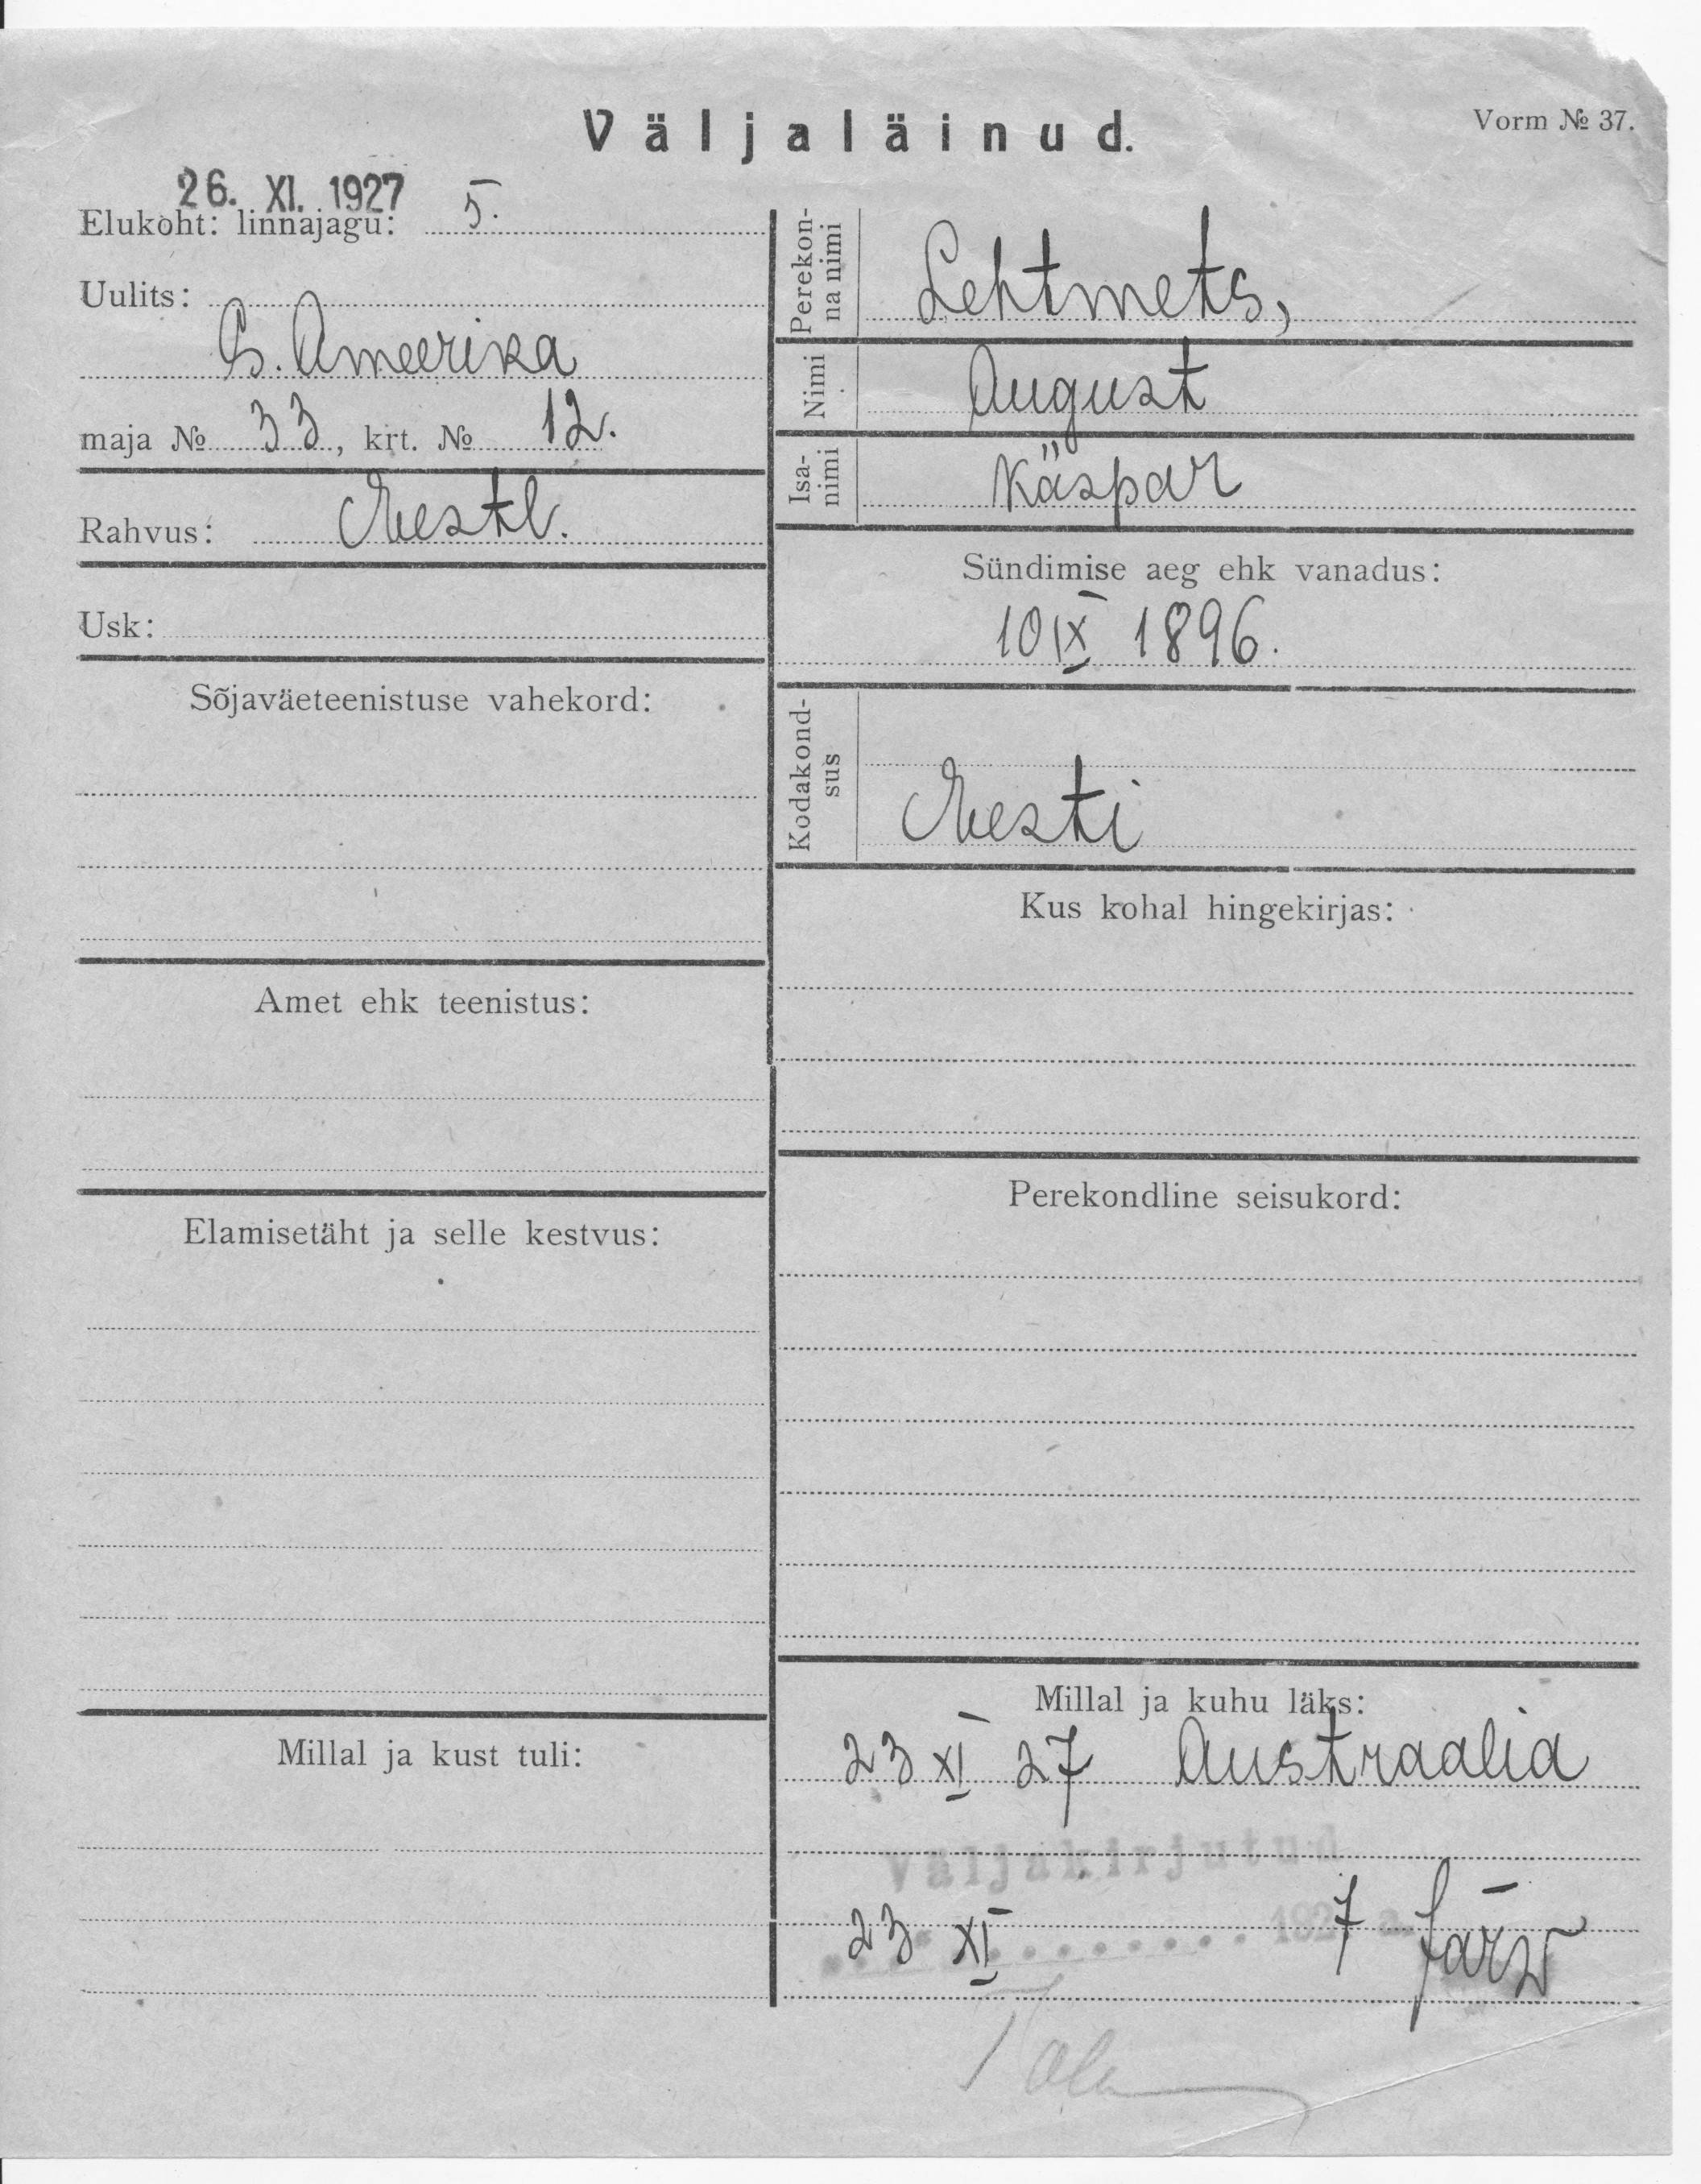 Väljaläinud.
Vorm № 37.
26. XI. 1927
Elukoht: linnajagu: 5.
Uulits:
S. Ameerika
maja № 33, krt. № 12.
Rahvus: Eestl.
Usk:
Sõjaväeteenistuse vahekord:
Amet ehk teenistus:
Elamisetäht ja selle kestvus:
Millal ja kust tuli:
Perekon-
na nimi
Lehtmets,
Nimi August
Isa-
nimi
Käspar
Sündimise aeg ehk vanadus:
10 IX 1896.
Kodakond-
sus
Eesti
Kus kohal hingekirjas:
Perekondline seisukord:
Millal ja kuhu läks:
23 XI 27 Austraalia
Väljakirjutud
23 XI 1927 a. Järw